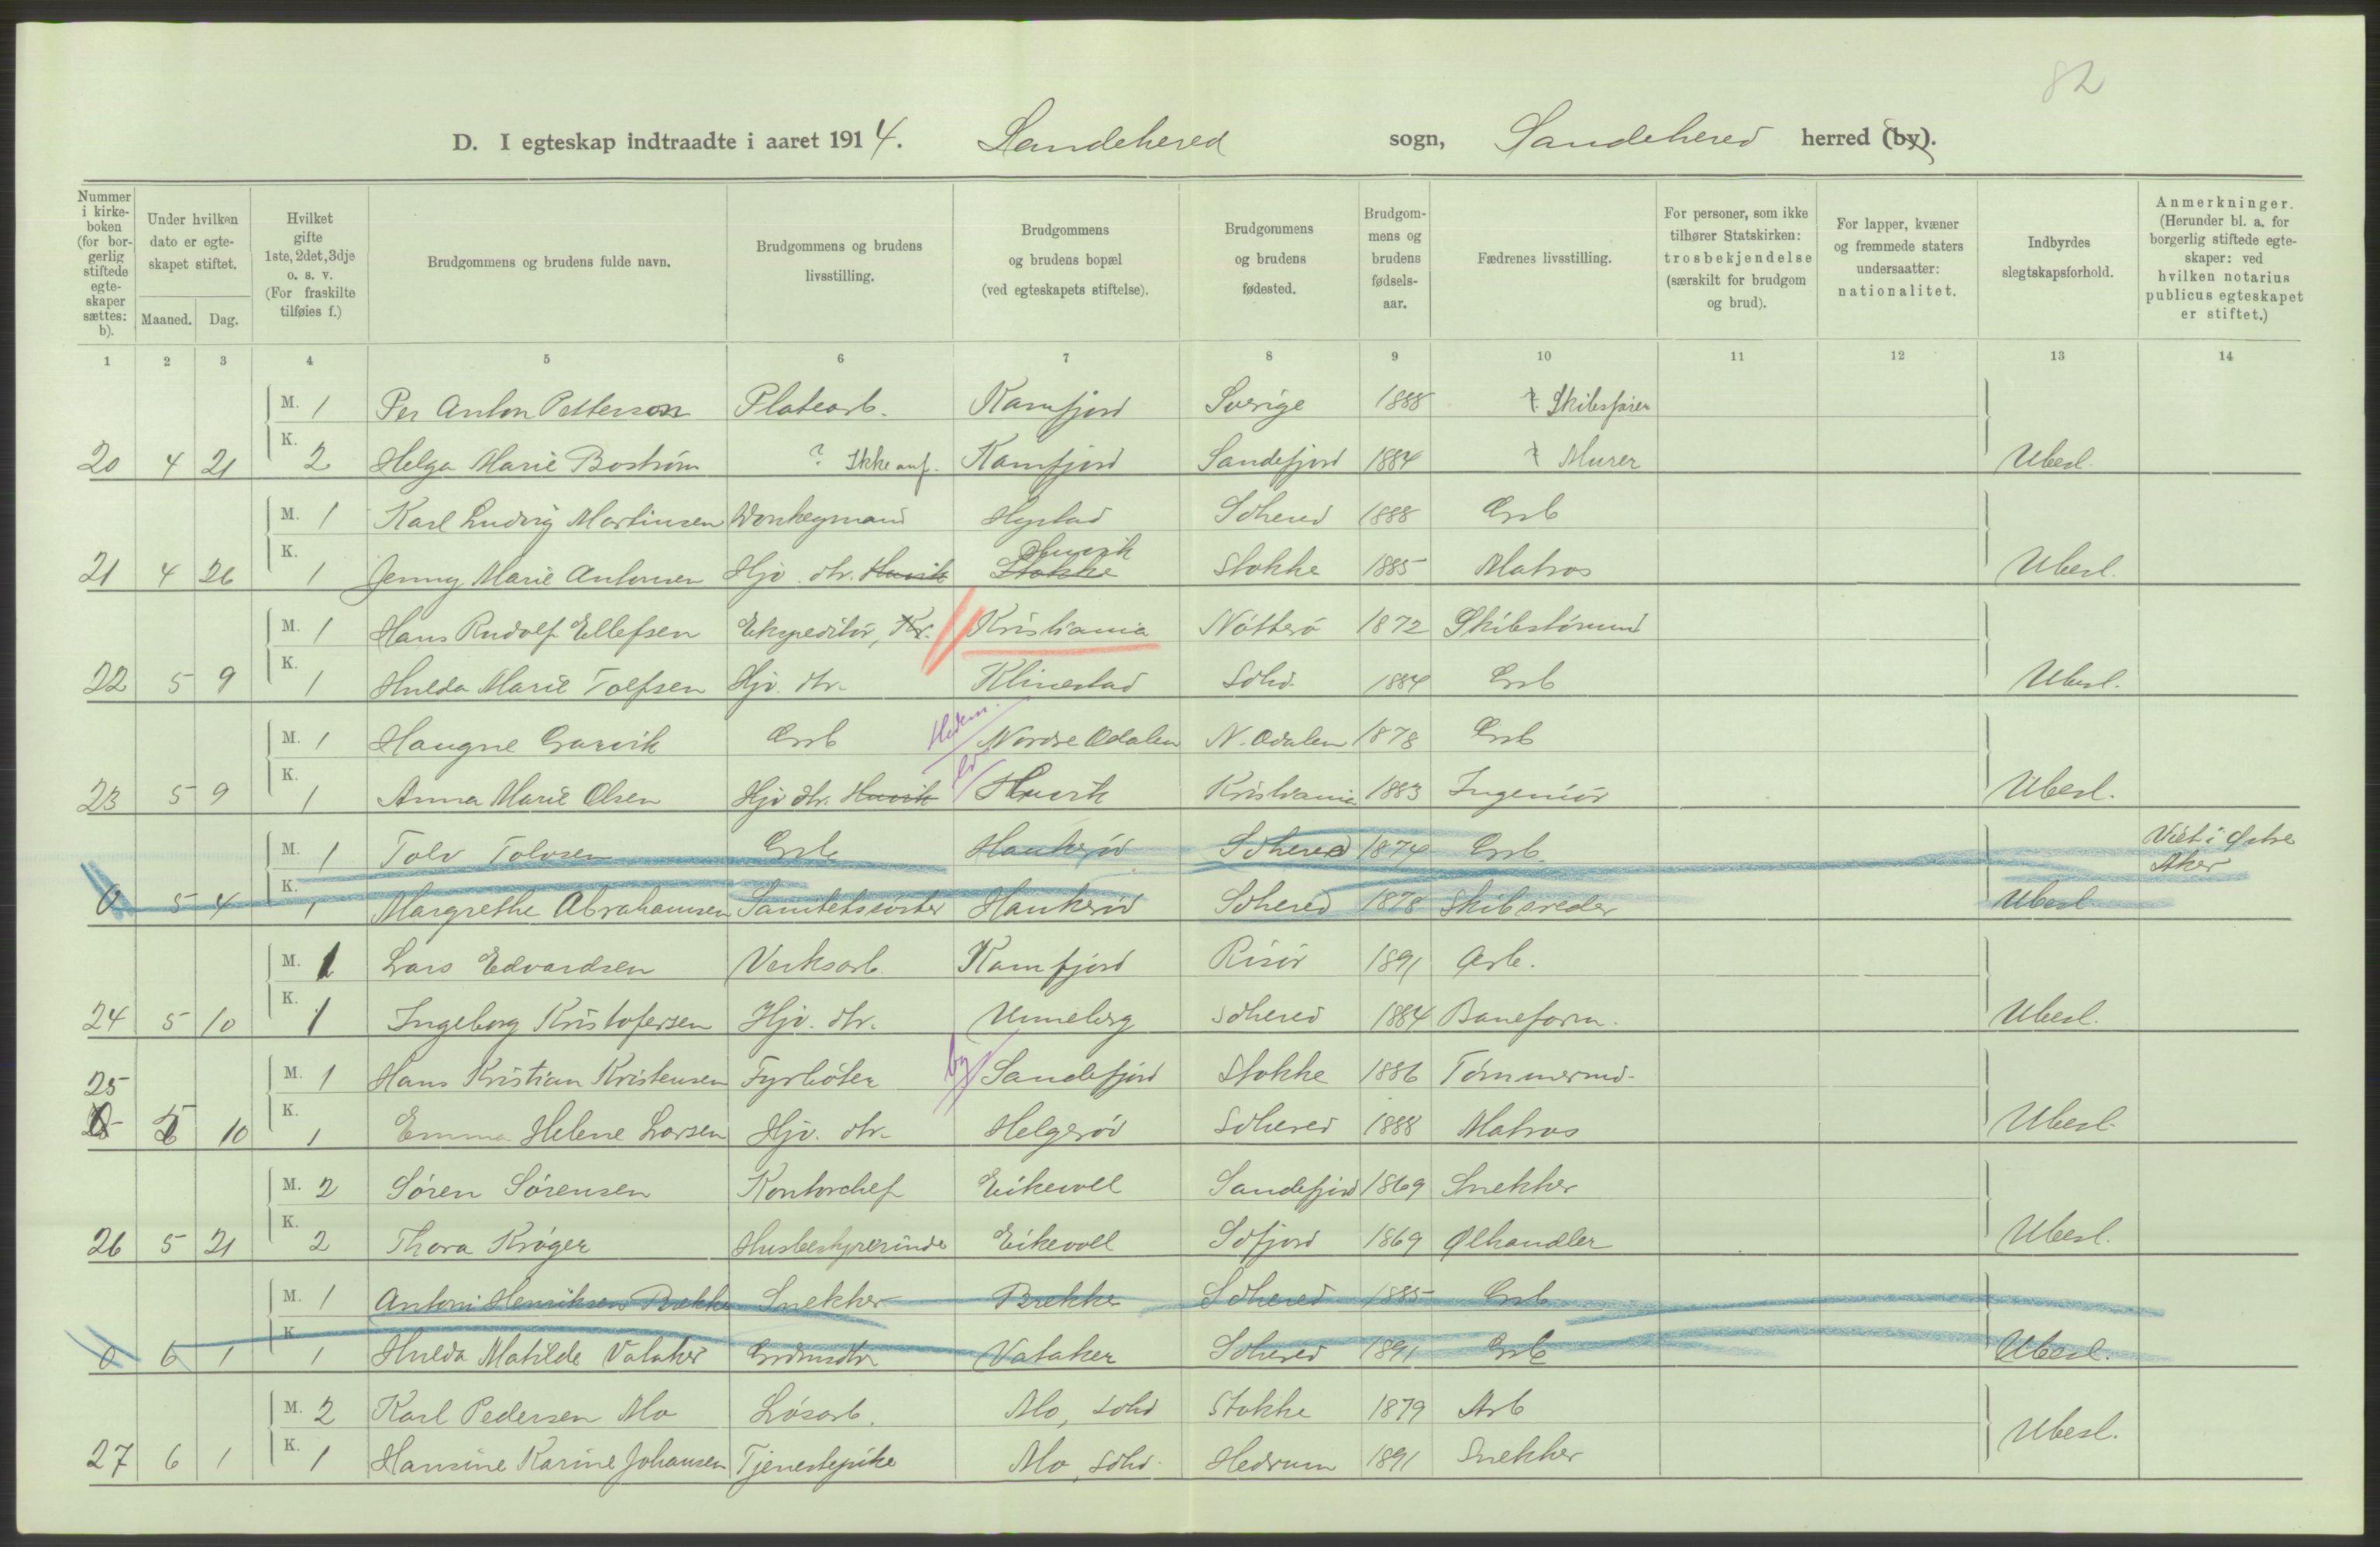 82
D. I egteskap indtraadte i aaret 1914. Sandehered sogn, Sandehered herred (by).
Nummer i kirkeboken (for borgerlig stiftede egteskaper sættes: b).
Under hvilken dato er egteskapet stiftet.
Maaned. Dag.
Hvilket gifte 1ste, 2det, 3dje o. s. v. (For fraskilte tilføies f.)
Brudgommens og brudens fulde navn.
Brudgommens og brudens livsstilling.
Brudgommens og brudens bopæl (ved egteskapets stiftelse).
Brudgommens og brudens fødested.
Brudgommens og brudens fødselsaar.
Fædrenes livsstilling.
For personer, som ikke tilhører Statskirken: trosbekjendelse (særskilt for brudgom og brud).
For lapper, kvæner og fremmede staters undersaatter: nationalitet.
Indbyrdes slegtskapsforhold.
Anmerkninger. (Herunder bl. a. for borgerlig stiftede egteskaper: ved hvilken notarius publicus egteskapet er stiftet.)
1 2 3 4 5 6 7 8 9 10 11 12 13 14
M. 1 Per Anton Petterson Platearb. Kamfjord Sverige 1888 Skibsfører
20 4 21 K. 2 Helga Marie Bostrøm ? Ikke anf. Kamfjord Sandefjord 1884 Murer Ubesl.
M. 1 Karl Ludvig Martinsen Hystad Sdhered 1888 Grb
21 4 26 K. 1 Jenny Marie Antonsen Hjv. dtr. Huvik Stokke Huvik Stokke 1885 Matros Ubesl.
M. 1 Hans Rudolf Ellefsen Ekspeditør, Kr. Kristiania Nøtterø 1872 Skibstømmd
22 5 9 K. 1 Hulda Marie Tolfsen Hjv. dtr. Klinestad Sdhd. 1884 Grb Ubesl.
M. 1 Haugne Garvik Grb Hedm. Nordre Odalen N. Odalen 1878 Grb
23 5 9 K. 1 Anna Marie Olsen Hjv dtr. Huvik Huvik Kristiania 1883 Ingeniør Ubesl.
M. 1 Tolv Tolvsen Grb Haukerød Sdhered 1874 Grb. Viet i Østre Aker
0 5 4 K. 1 Margrethe Abrahamsen Sanitetssøster Haukerød Sdhered 1878 Skibsreder Ubesl
M. 1 Lars Edvardsen Verksarb. Kamfjord Risør 1891 Arb.
24 5 10 K. 1 Ingeborg Kristofersen Hjv. dtr. Unneberg Sdhered 1884 Baneform. Ubesl.
25 M. 1 Hans Kristian Kristensen Fyrbøter by Sandefjord Stokke 1886 Tømmermd.
5 10 K. 1 Emma Helene Larsen Hjv. dtr. Helgerød Sdhered 1888 Matros Ubesl.
M. 2 Søren Sørensen Kontorchef Eikevoll Sandefjord 1869 Snekker
26 5 21 K. 2 Thora Krøger Husbestyrerinde Eikevoll Sdfjord 1869 Ølhandler Ubesl.
M. 1 Antoni Henriksen Brekke Snekker Brekke Sdhered 1885 Grb
0 6 1 K. 1 Hulda Matilde Vataker Grdmdtr Vataker Sdhered 1891 Grb Ubesl.
M. 2 Karl Pedersen Mo Løsarb. Mo, Sdhd Stokke 1879 Arb
27 6 1 K. 1 Hansine Karine Johansen Tjenestepike Mo, Sdhd. Hedrum 1891 Snekker Ubesl.